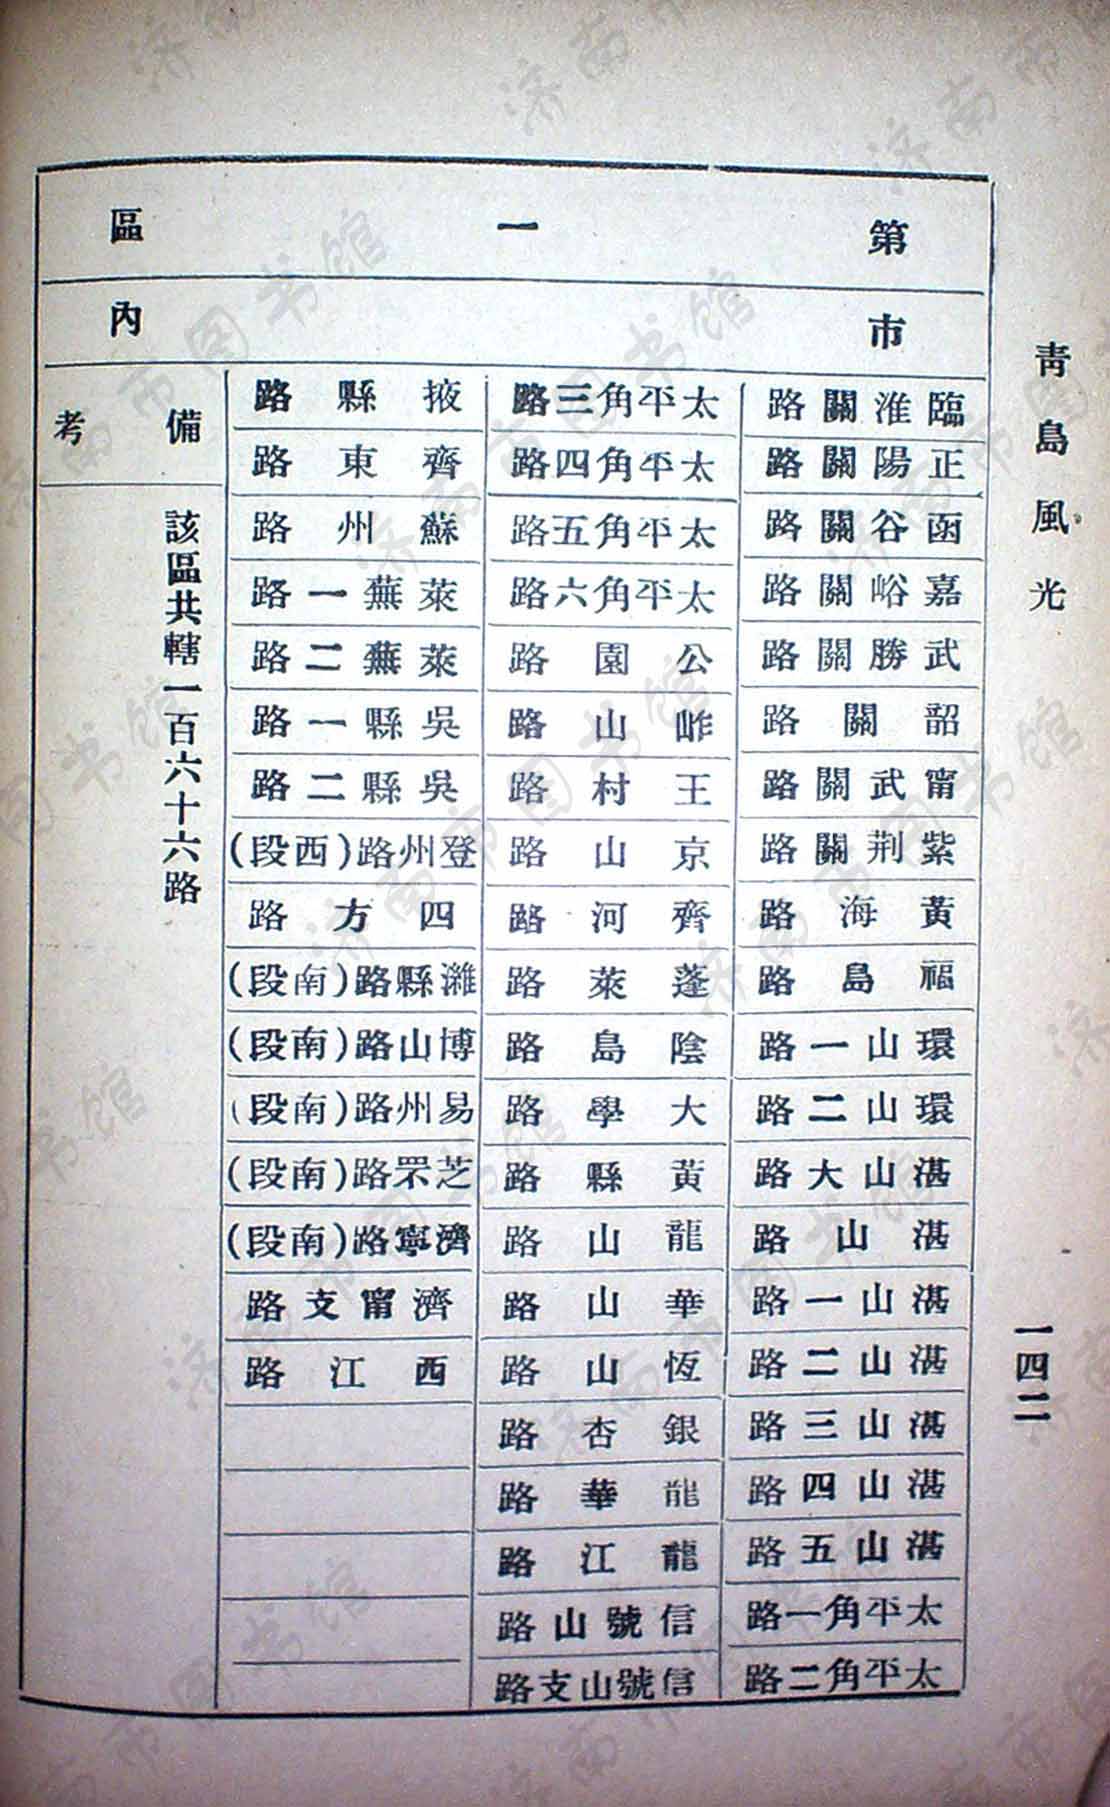 青島風光
一四二
第一區
市內
臨淮關路
正陽關路
函谷關路
嘉峪關路
武勝關路
韶關路
甯武關路
紫荆關路
黃海路
福島路
環山一路
環山二路
湛山大路
湛山路
湛山一路
湛山二路
湛山三路
湛山四路
湛山五路
太平角一路
太平角二路
太平角三路
太平角四路
太平角五路
太平角六路
公園路
岞山路
王村路
京山路
齊河路
蓬萊路
陰島路
大學路
黃縣路
龍山路
華山路
恆山路
銀杏路
龍華路
龍江路
信號山路
信號山支路
掖縣路
齊東路
蘇州路
萊蕪一路
萊蕪二路
吳縣一路
吳縣二路
登州路(西段)
四方路
濰縣路(南段)
博山路(南段)
易州路(南段)
芝罘路(南段)
濟寧路(南段)
濟甯支路
西江路
備考
該區共轄一百六十六路
济南市图书馆